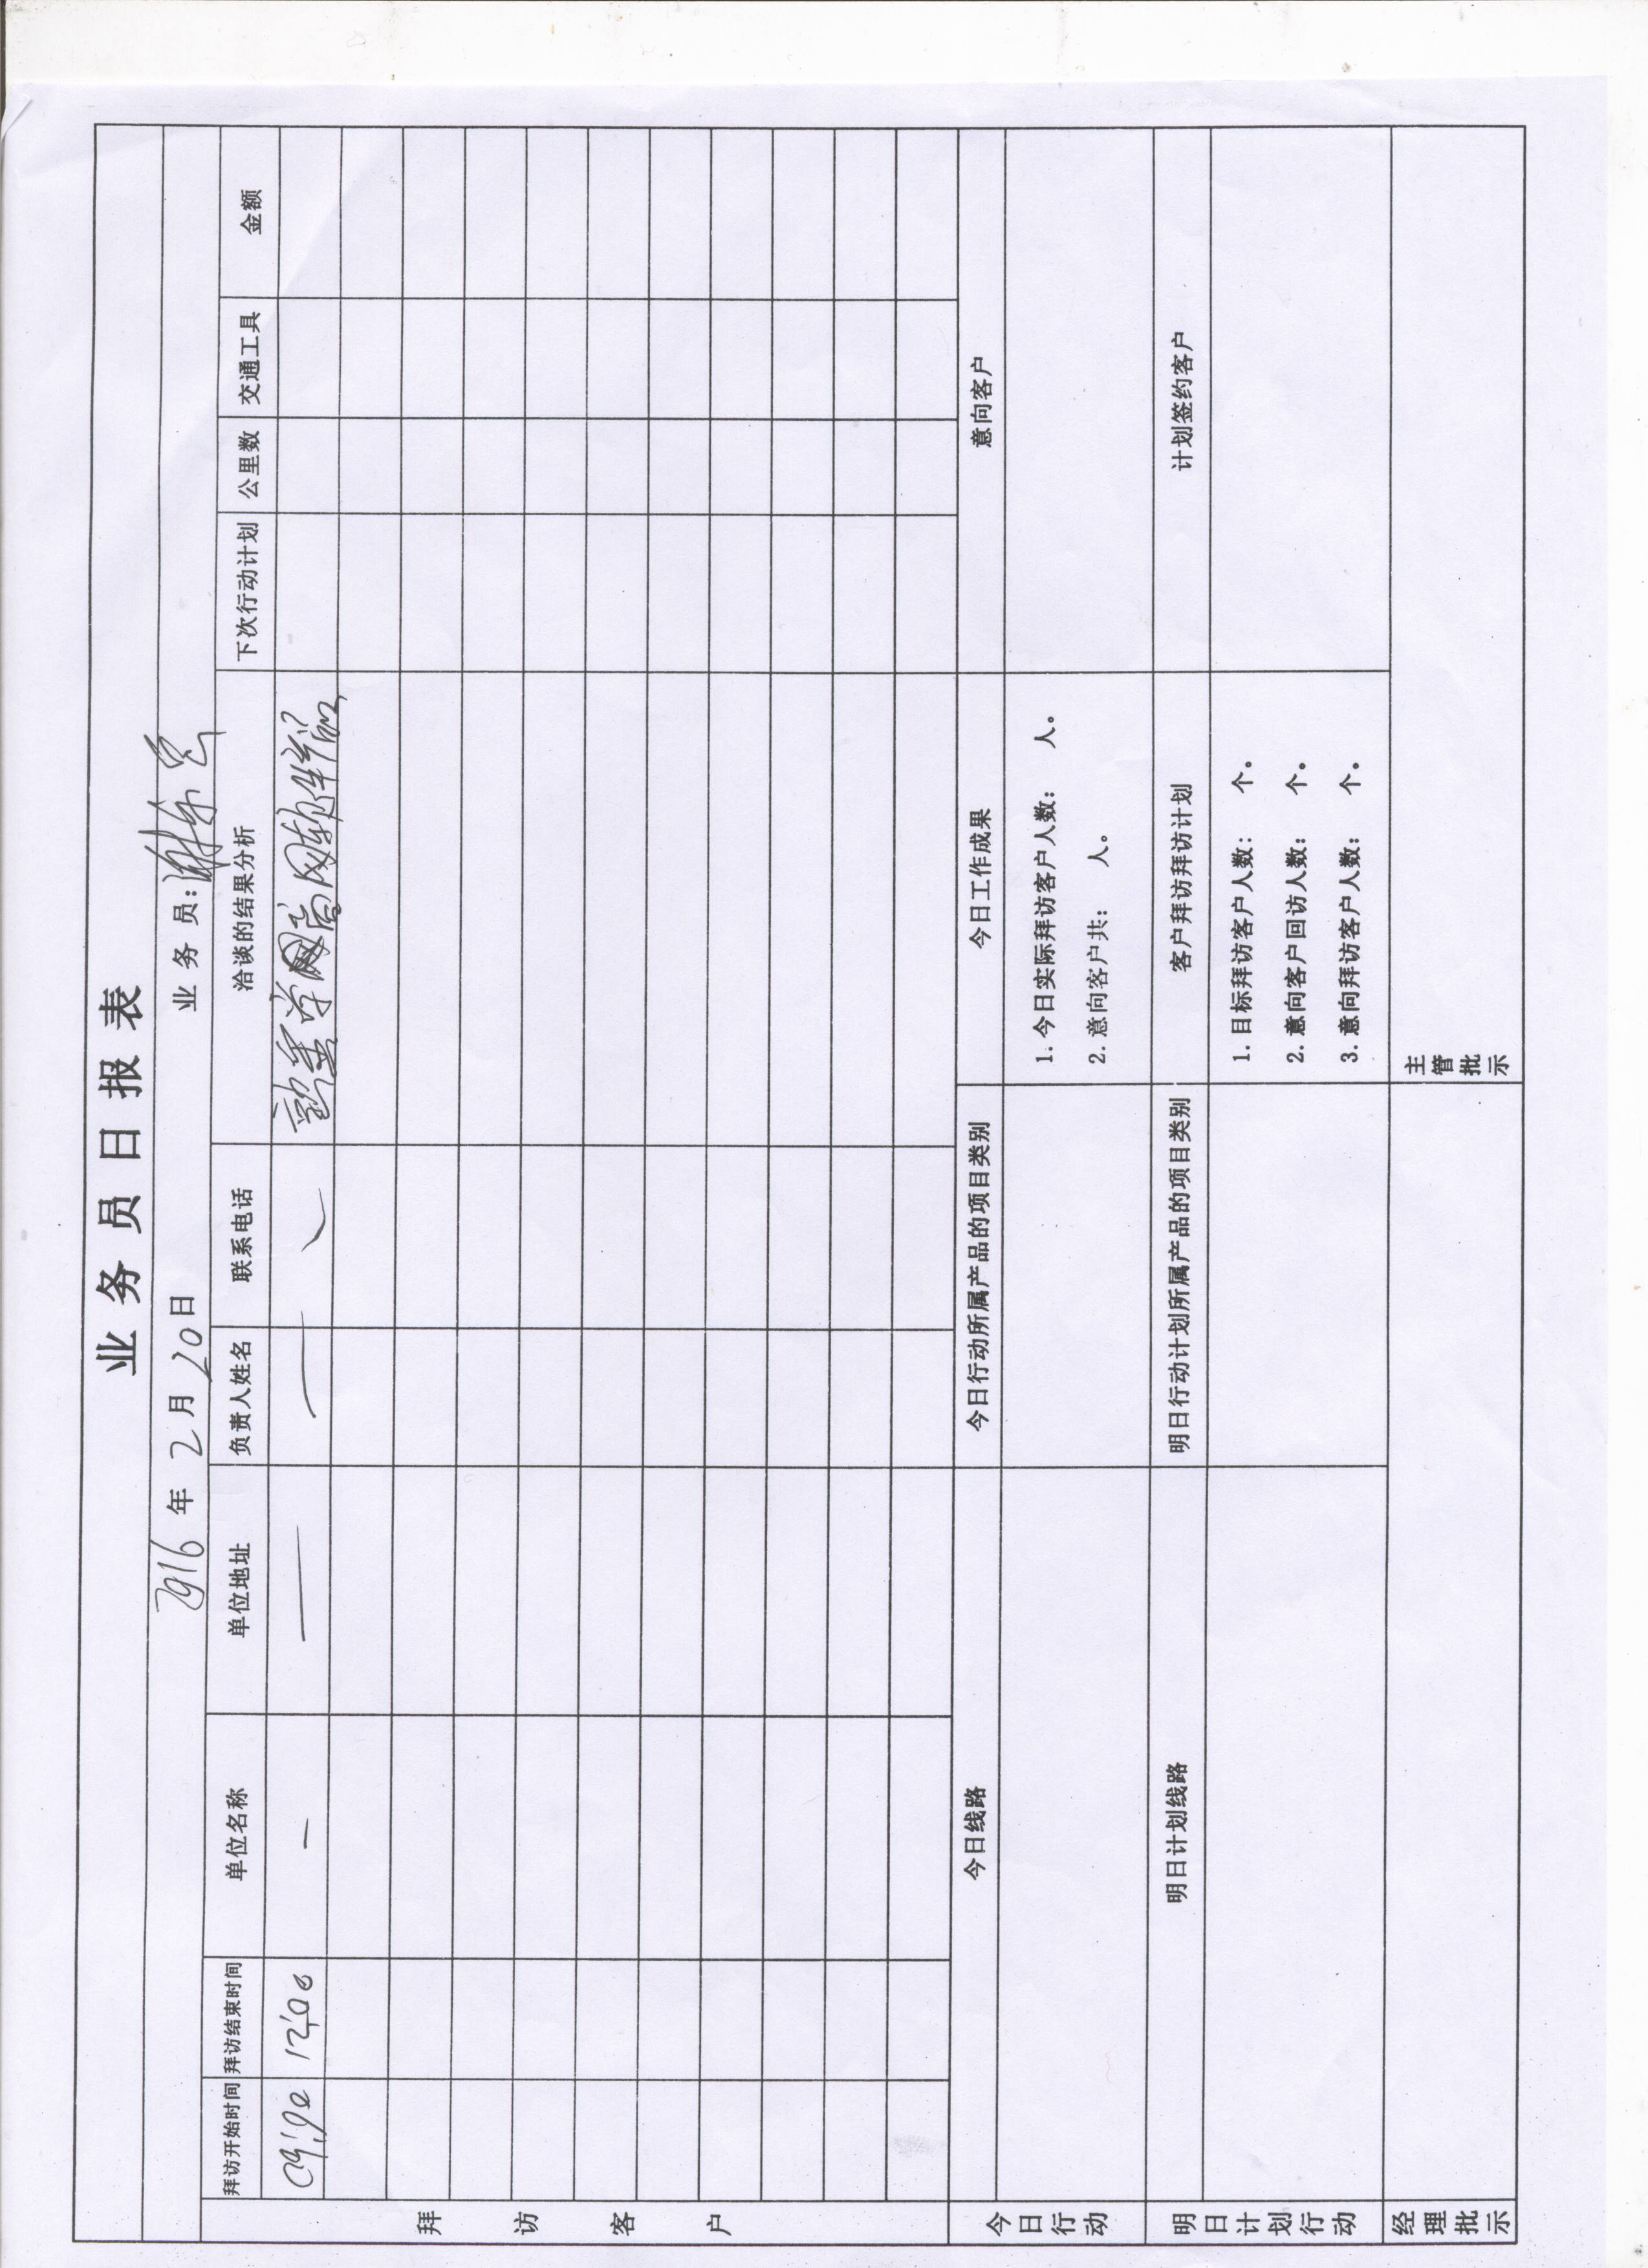 业务员日报表
2016 年 2 月 20 日 业 务 员：谢
拜访开始时间 拜访结束时间 单位名称 单位地址 负责人姓名 联系电话 洽谈的结果分析 下次行动计划 公里数 交通工具 金额
09:00 12:00 — — —
拜访客户
今日行动 今日线路 今日行动所属产品的项目类别 今日工作成果 意向客户
1.今日实际拜访客户人数： 人。
2.意向客户共： 人。
明日计划行动 明日计划线路 明日行动计划所属产品的项目类别 客户拜访拜访计划 计划签约客户
1.目标拜访客户人数： 个。
2.意向客户回访人数： 个。
3.意向拜访客户人数： 个。
经理批示 主管批示